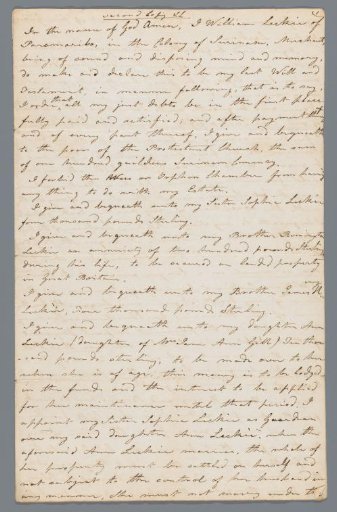 Second Copy
In the name of God Amen, I William Leckie of
Paramaribo, in the Colony of Surinam, Merchant
being of sound and disposing mind and memory,
do make and declare this to be my last Will and
Testament, in manner following, that is to say.
I order that all my just debts be in the first place
fully paid and satisfied, and after payment
and of every part thereof, I give and bequeath
to the poor of the Protestant Church, the sum
of one hundred guilders Surinam Currency.
I forbid the Wees or Orphan Chamber from having
any thing to do with my Estate.
I give and bequeath unto my Sister Sophia Leckie
four thousand pounds Sterling.
I give and bequeath unto my Brother
Leckie an annuity of two hundred pounds Sterling
during his life, to be secured on landed property
in Great Britain.
I give and bequeath unto my Brother James
Leckie, four thousand pounds Sterling.
I give and bequeath unto my daughter Ann
Leckie (daughter of Ann Gill)
pounds sterling, to be made over to her
when she is of age, this money is to be lodged
in the funds and the interest to be applied
for her maintenance until that period, I
appoint my Sister Sophia Leckie as Guardian
over my said daughter Ann Leckie, when the
aforesaid Ann Leckie marries, the whole of
her property must be settled on herself and
not subject to the control of her husband in
any manner, she must not marry under